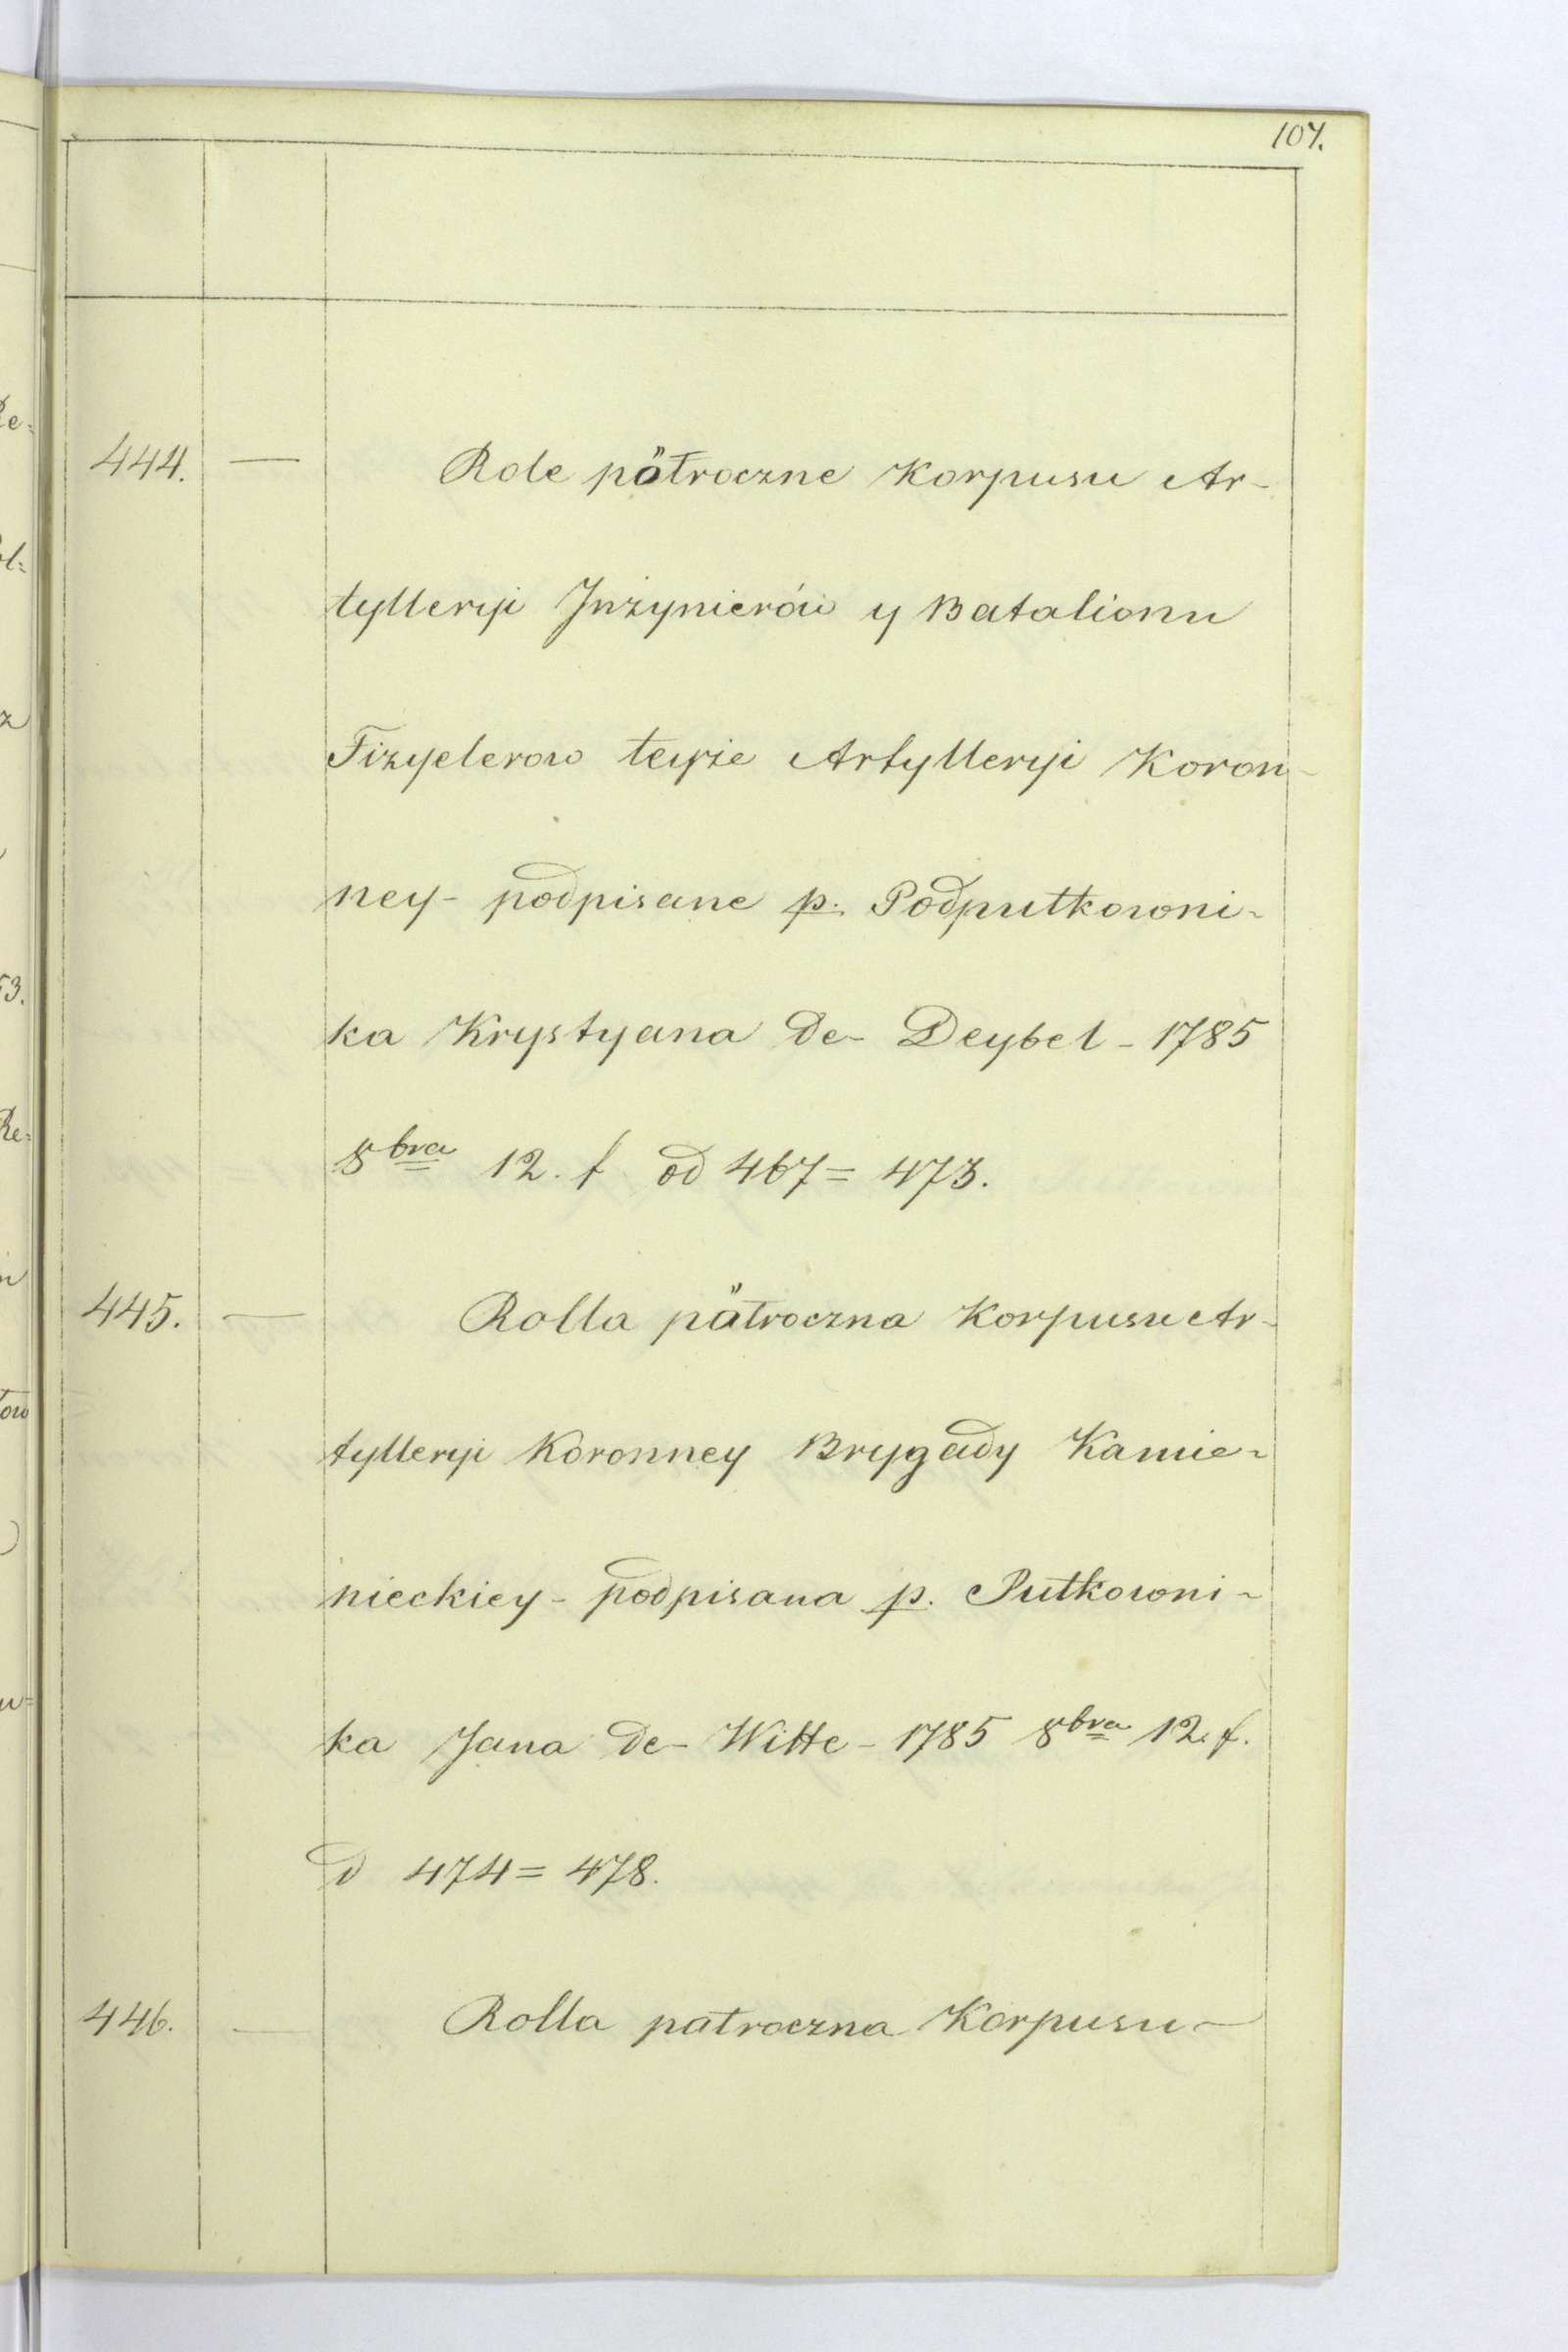 107.
444. — Role półroczne Korpusu Ar-
tylleryi Inżynierów y Batalionu
Fizyelerow teyże Artylleryi Koron-
ney - podpisane p. Podpułkowni-
ka Krystyana de - Deybel - 1785
8bra 12. f od 467 = 473.
445. — Rolla pałroczna Korpusu Ar-
tylleryi Koronney Brygady Kamie-
nieckiey - podpisana p. Pułkowni-
ka Jana de - Witte - 1785 8bra 12. f.
d 474 = 478.
446. — Rolla pałroczna Korpusu -